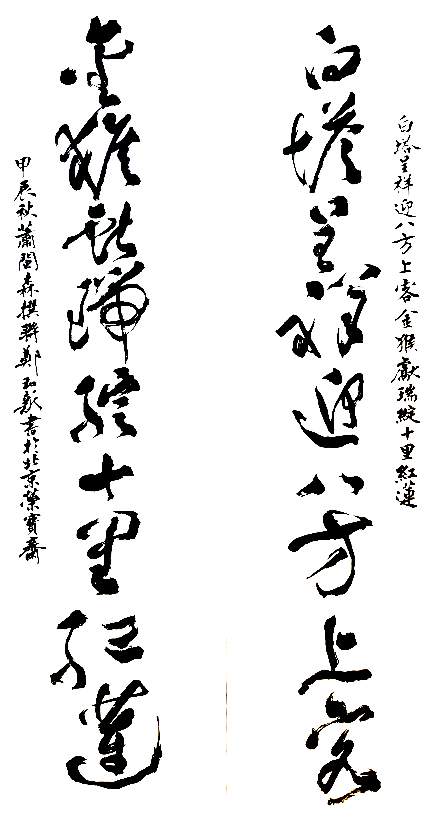 白塔呈祥迎八方上客金猴獻瑞綻十里紅蓮
白塔呈祥迎八方上客
金猴獻瑞綻十里紅蓮
甲辰秋蕭閏森撰聯鄭弘敭書於北京榮寶齋